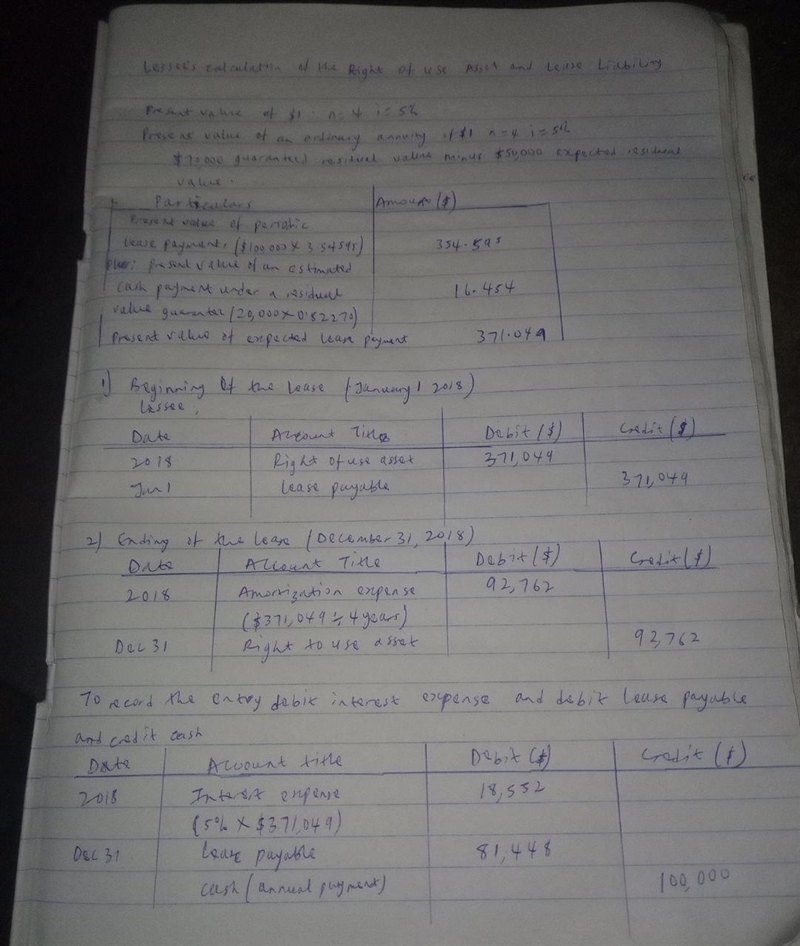 Lessee's calculation of the Right of use Asset and Lease Liability
Present value of $1 n=4 i=5%
Present value of an ordinary annuity of $1 n=4 i=5%
$70,000 guaranteed residual value minus $50,000 expected residual
value.
Particulars Amount ($)
Present value of periodic
lease payments ($100,000 X 3.54595) 354.595
Plus: present value of an estimated
cash payment under a residual 16.454
value guarantee (20,000 X 0.82270)
Present value of expected lease payment 371.049
1) Beginning of the lease (January 1 2018)
Lessee:
Date Account Titles Debit ($) Credit ($)
2018 Right of use asset 371,049
Jan 1 lease payable 371,049
2) Ending of the lease (December 31, 2018)
Date Account Title Debit ($) Credit ($)
2018 Amortization expense 92,762
($371,049 ÷ 4 years)
Dec 31 Right to use asset 92,762
To record the entry debit interest expense and debit lease payable
and credit cash
Date Account title Debit ($) Credit ($)
2018 Interest expense 18,552
(5% X $371,049)
Dec 31 lease payable 81,448
cash (annual payment) 100,000